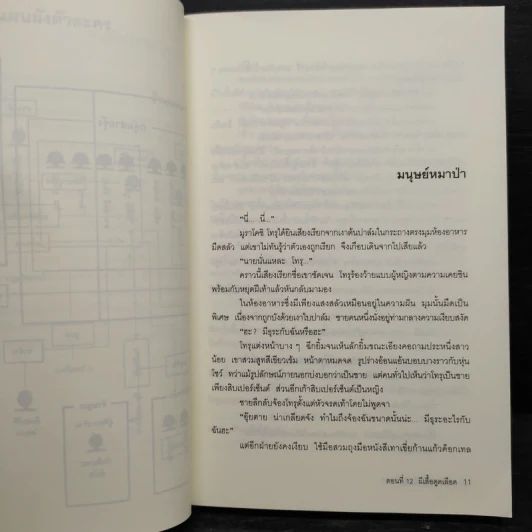 มนุษย์หมาป่า
“นี่... นี่...”
มุราโคชิ โทรุได้ยินเสียงเรียกจากเงาต้นปาล์มในกระถางตรงมุมห้องอาหาร
มืดสลัว แต่เขาไม่ทันรู้ว่าตัวเองถูกเรียก จึงเกือบเดินจากไปเสียแล้ว
“นายนั่นแหละ โทรุ...”
คราวนี้เสียงเรียกชื่อเขาชัดเจน โทรุร้องว้ายแบบผู้หญิงตามความเคยชิน
พร้อมกับหยุดฝีเท้าแล้วหันกลับมามอง
ในห้องอาหารซึ่งมีเพียงแสงสลัวเหมือนอยู่ในความฝัน มุมนั้นมืดเป็น
พิเศษ เนื่องจากถูกบังด้วยเงาใบปาล์ม ชายคนหนึ่งนั่งอยู่ท่ามกลางความเงียบสงัด
“ฮะ? มีธุระกับฉันหรือฮะ”
โทรุแต่งหน้าบาง ๆ ฉีกยิ้มจนเห็นลักยิ้มขณะเอียงคอถามประหนึ่งสาว
น้อย เขาสวมสูทสีเขียวเข้ม หน้าตาหมดจด รูปร่างอ้อนแอ้นบอบบางราวกับหุ่น
โชว์ ทว่าแม้รูปลักษณ์ภายนอกบ่งบอกว่าเป็นชาย แต่คนทั่วไปเห็นว่าโทรุเป็นชาย
เพียงสิบเปอร์เซ็นต์ ส่วนอีกเก้าสิบเปอร์เซ็นต์เป็นหญิง
ชายลึกลับจ้องโทรุตั้งแต่หัวจรดเท้าโดยไม่พูดจา
“อุ๊ยตาย น่าเกลียดจัง ทำไมถึงจ้องฉันขนาดนั้นน่ะ... มีธุระอะไรกับ
ฉันฮะ”
แต่อีกฝ่ายยังคงเงียบ ใช้มือสวมถุงมือหนังสีเทาเขี่ยก้านแก้วค็อกเทล
ตอนที่ 12 ผีเสื้อดูดเลือด 11